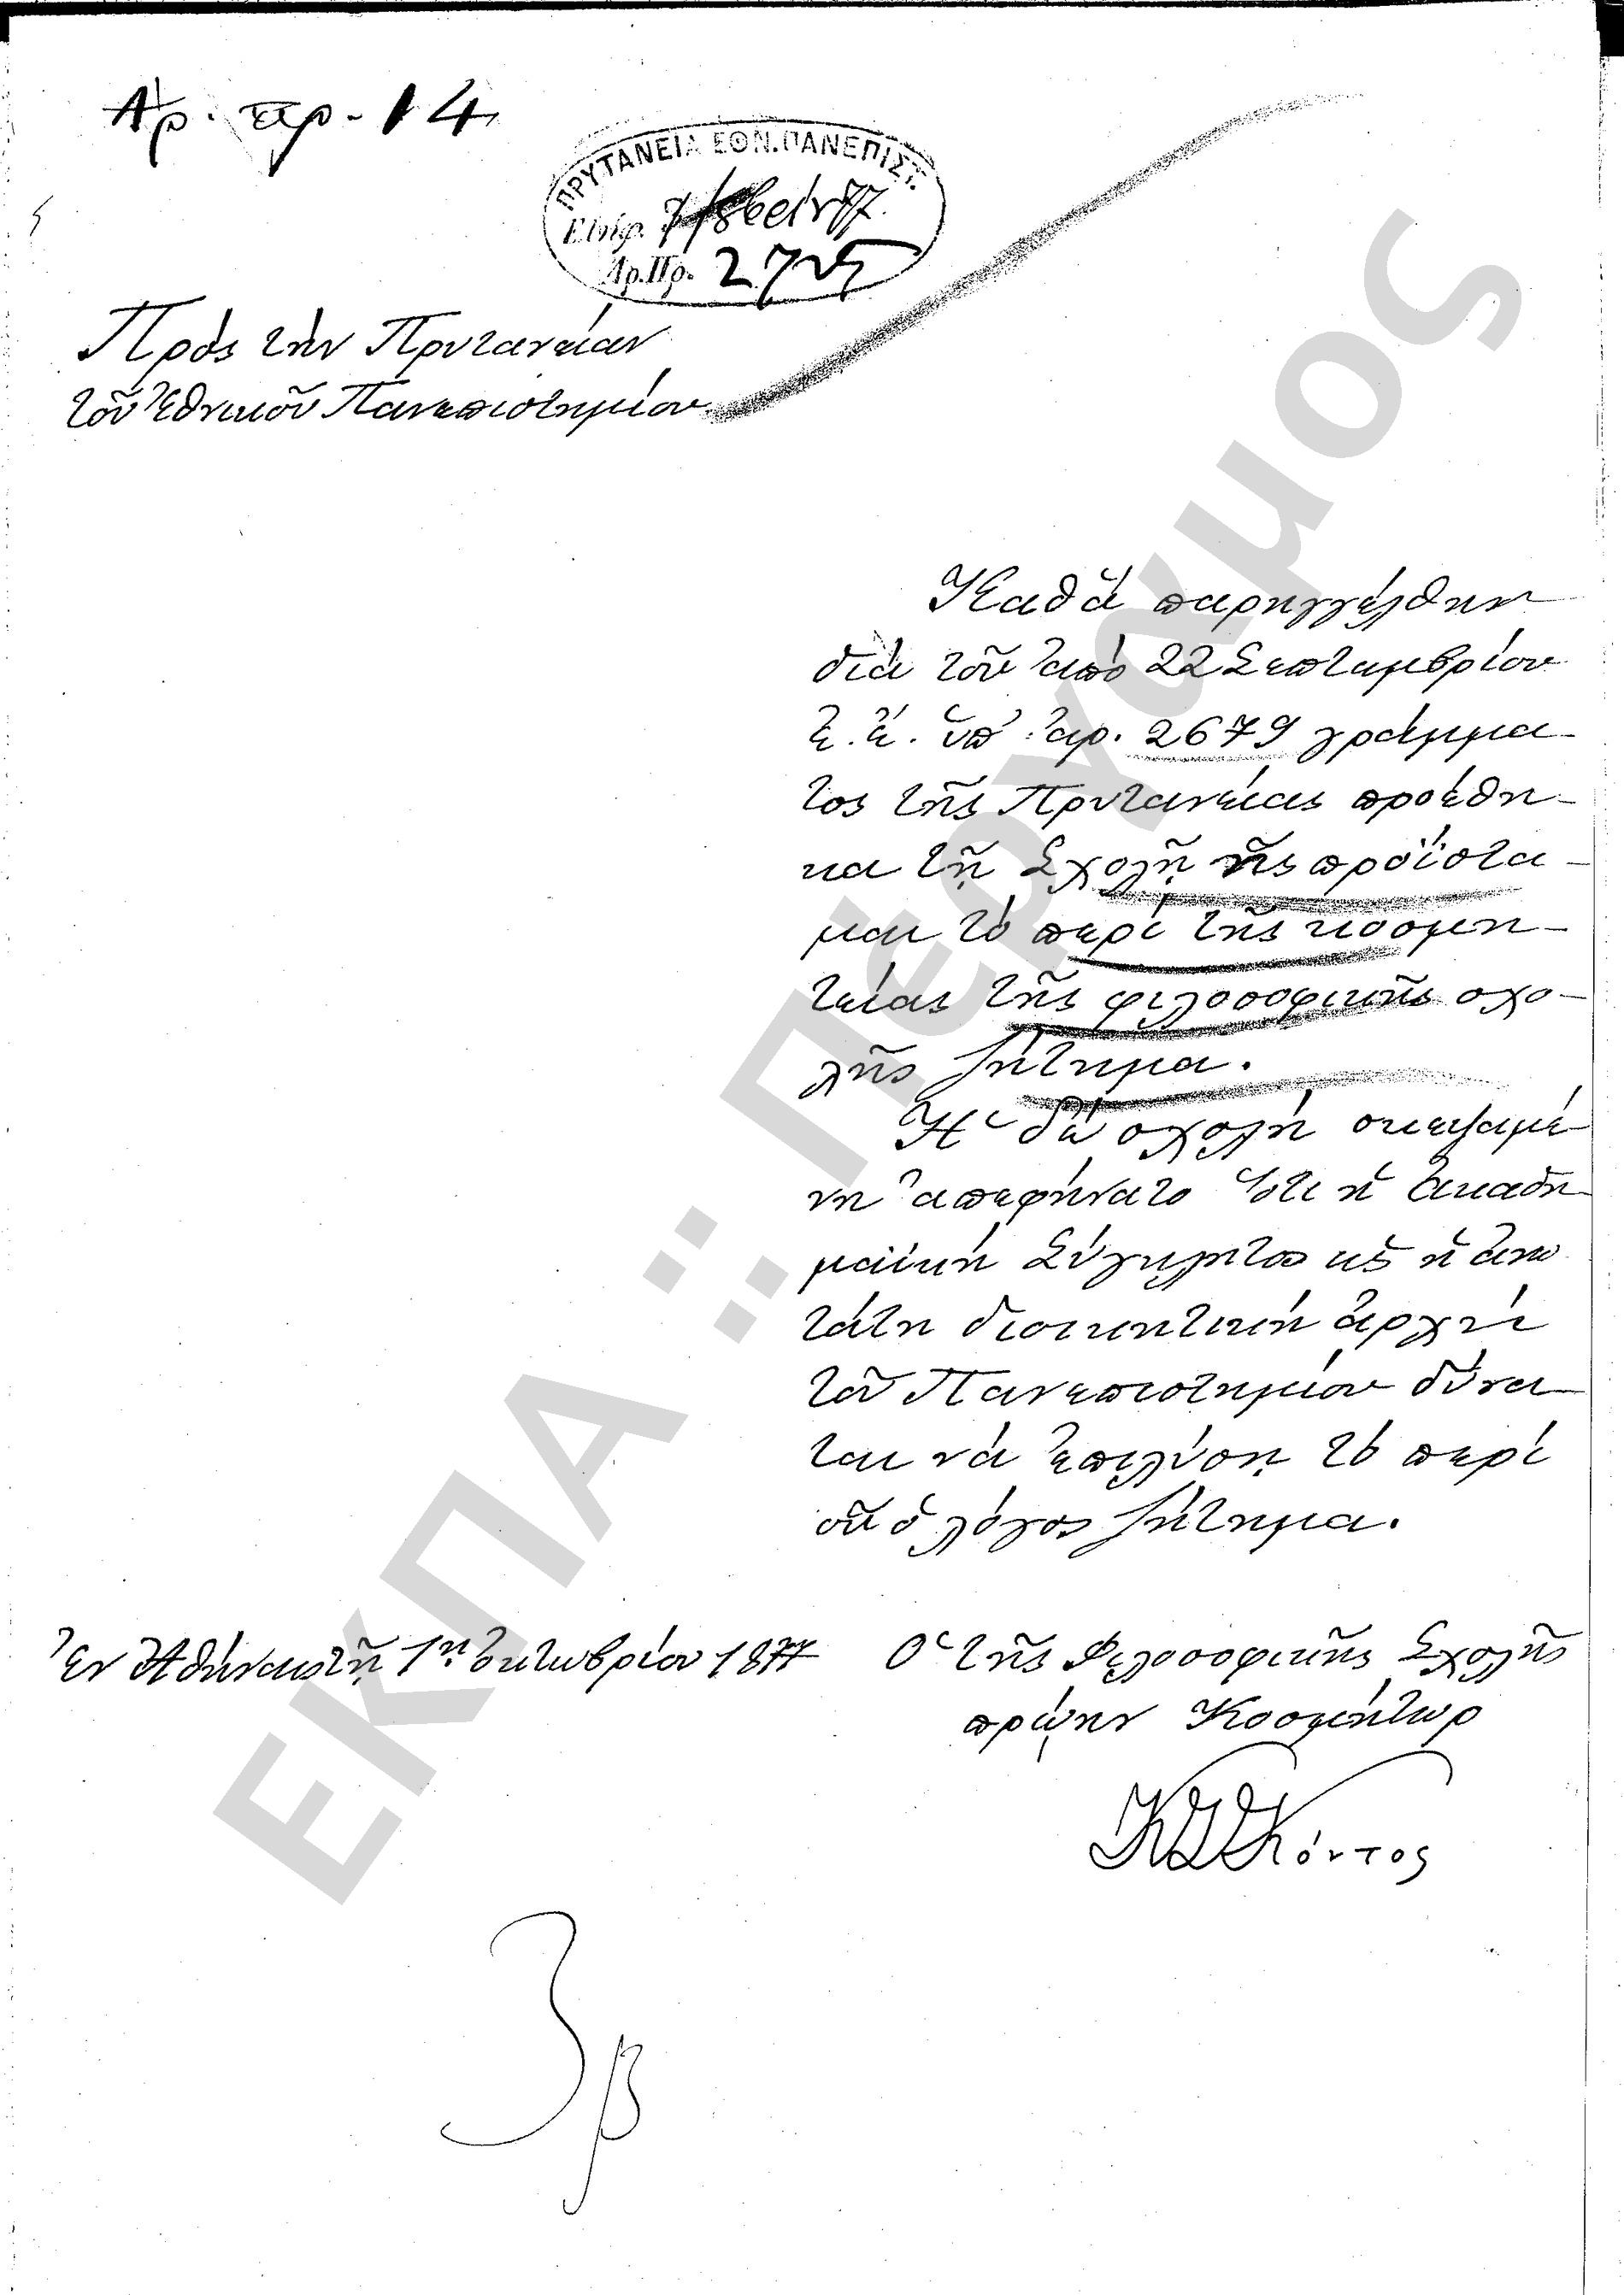 Ἀρ. πρ. 14
ΠΡΥΤΑΝΕΙΑ ΕΘΝ. ΠΑΝΕΠΙΣΤ.
Εἰσήχ.
Ἀρ. Πρ.
Πρὸς τὴν Πρυτανείαν
τοῦ Ἐθνικοῦ Πανεπιστημίου
Καθὰ παρηγγέλθην
διὰ τοῦ ἀπὸ 22 Σεπτεμβρίου
ἐ. ἔ. ὑπ' ἀρ. 2679 γράμμα-
τος τῆς Πρυτανείας προέθη-
κα τῇ Σχολῇ ἧς προΐστα-
μαι τὸ περὶ τῆς κοσμη-
τείας τῆς φιλοσοφικῆς σχο-
λῆς ζήτημα.
Ἡ δὲ σχολὴ σκεψαμέ-
νη ἀπεφήνατο ὅτι ἡ Ἀκαδη-
μαϊκὴ Σύγκλητος ὡς ἡ ἀνω
τάτη διοικητικὴ ἀρχὴ
τοῦ Πανεπιστημίου δύνα-
ται νὰ ἐπιλύσῃ τὸ περὶ
οὗ ὁ λόγος ζήτημα.
Ἐν Ἀθήναις τῇ 1ῃ Ὀκτωβρίου 1877
Ὁ τῆς Φιλοσοφικῆς Σχολῆς
πρώην Κοσμήτωρ
Κ Σ Κόντος
ΕΚΠΑ :: Πέργαμος